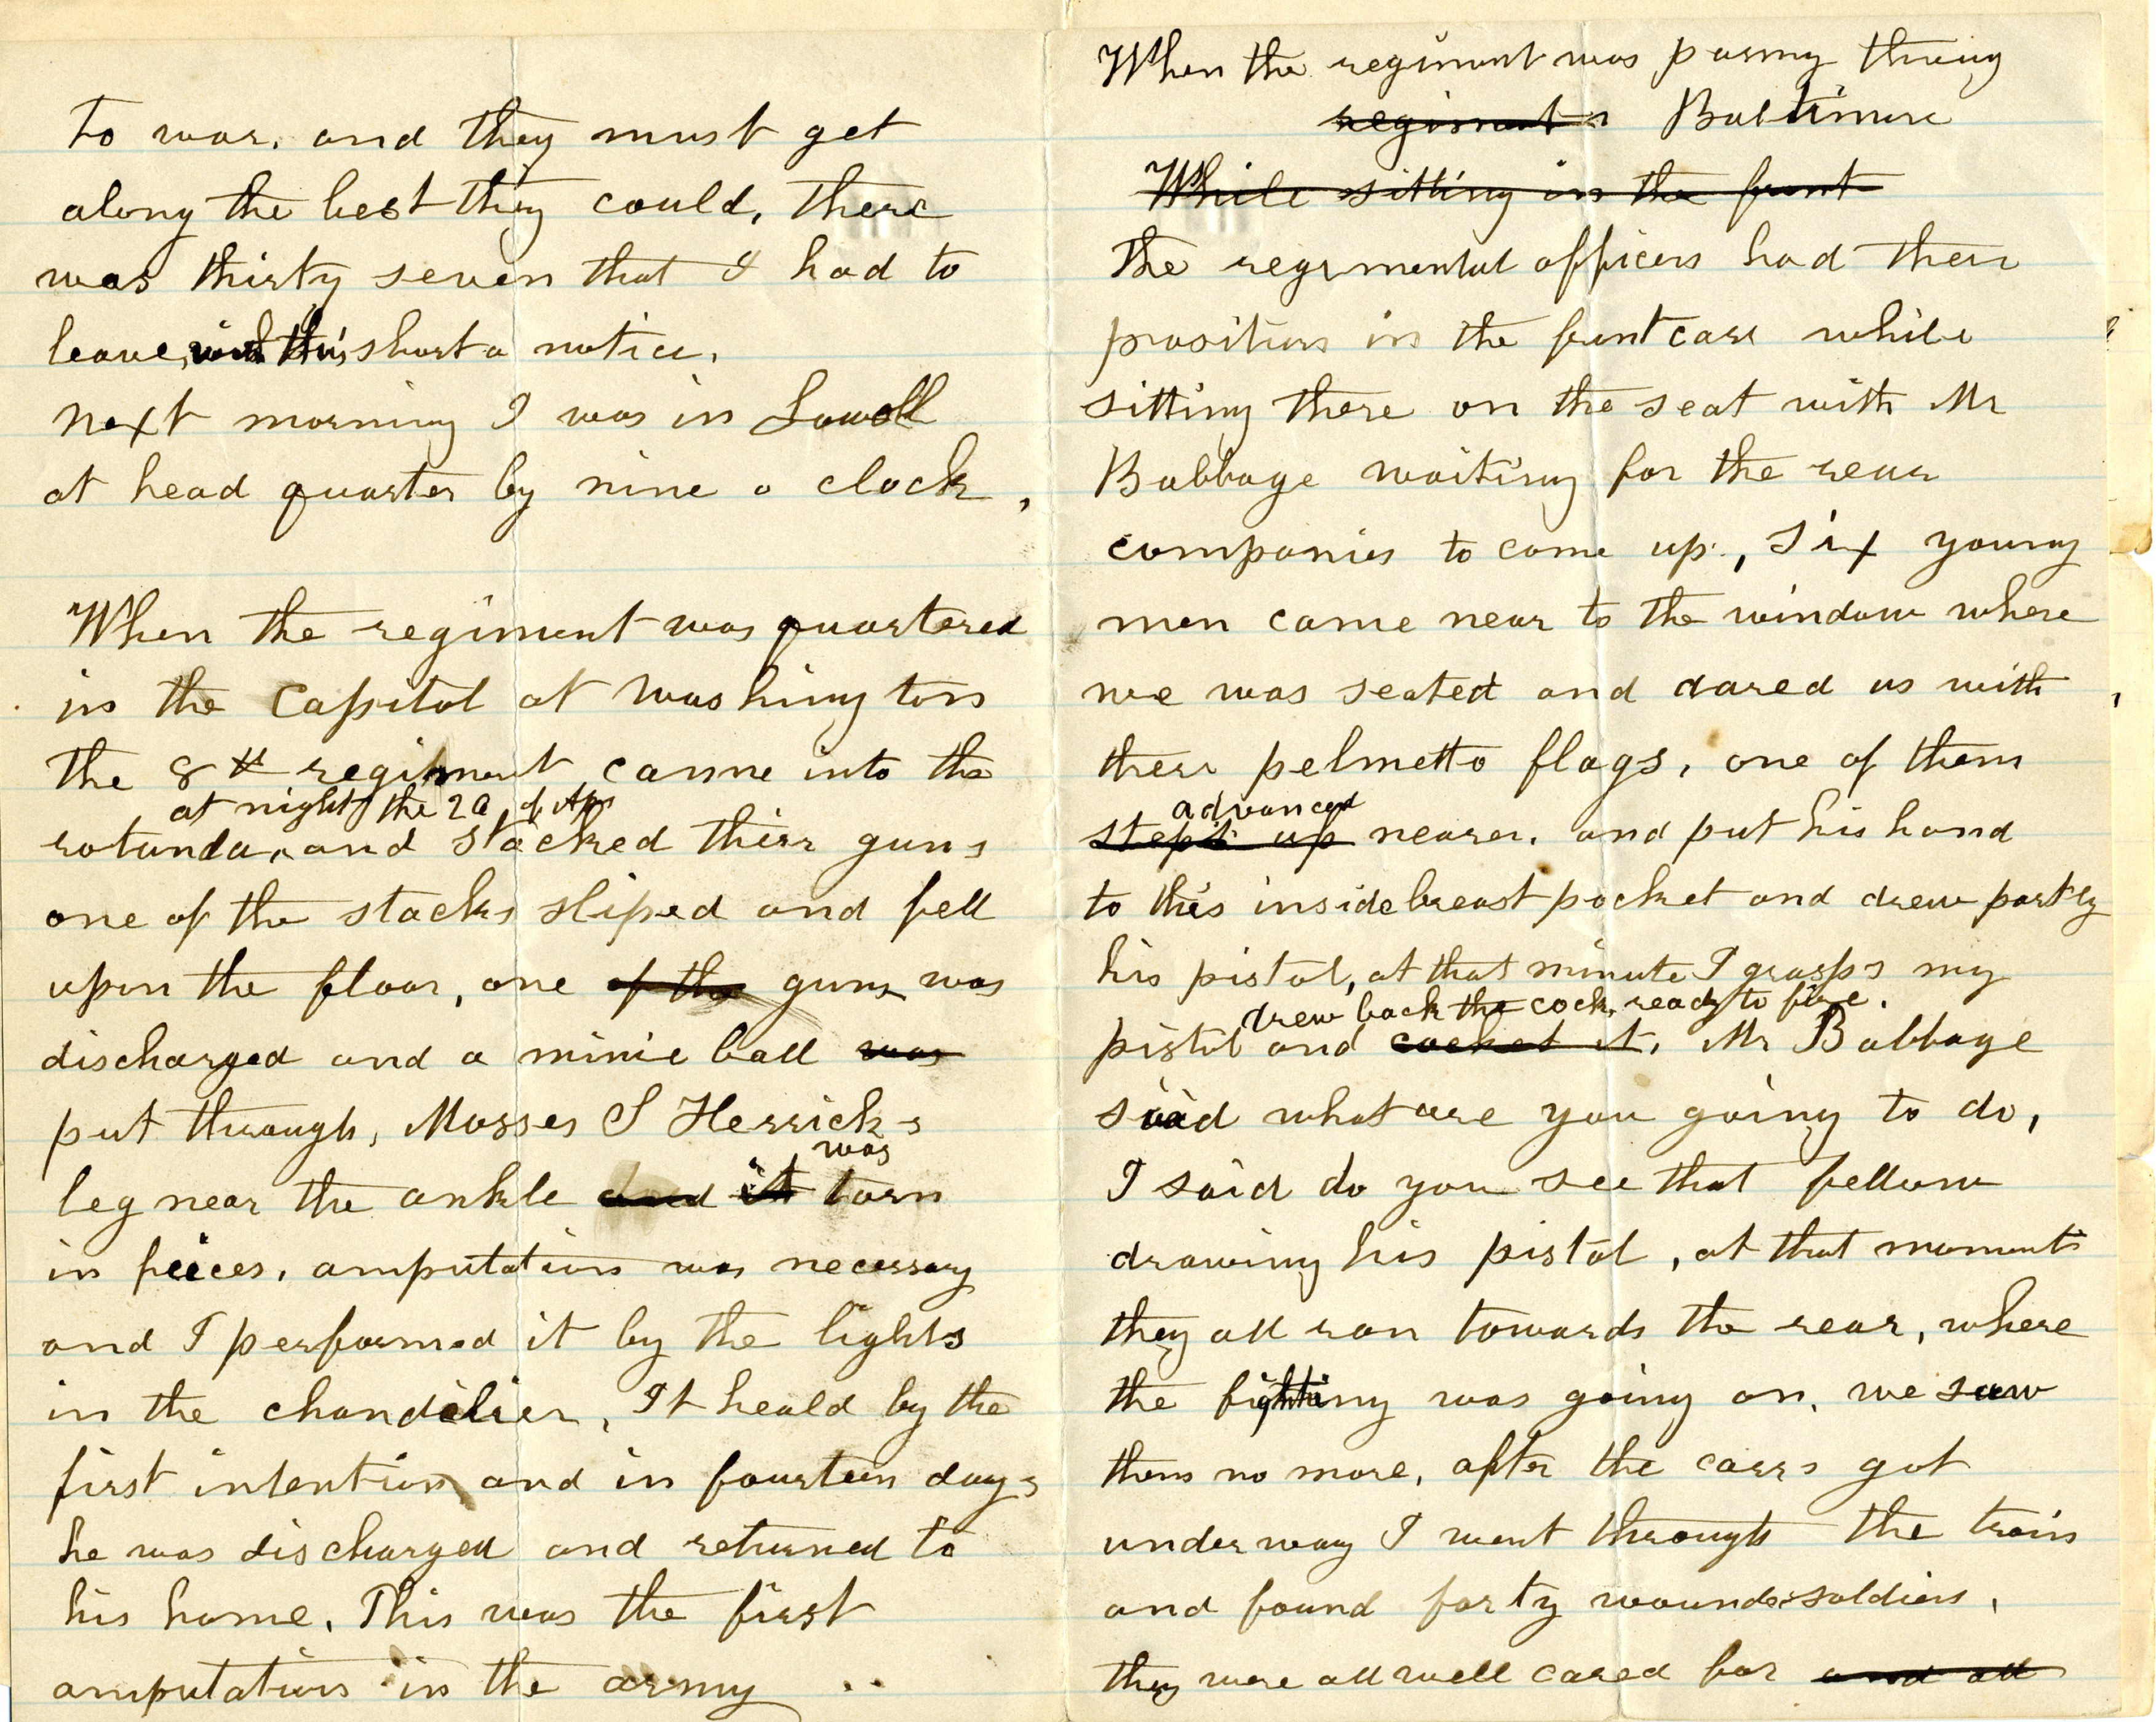 to war, and they must get
along the best they could, there
was thirty seven that I had to
leave, with this short a notice.
next morning I was in Lowell
at head quarter by nine o clock,
When the regiment was quartered
in the Capitol at Washington
the 8th regiment came into the
at night the 20 of Apr
rotunda, and stacked thier guns
one of the stacks sliped and fell
upon the floor, one of the guns was
discharged and a minie ball was
put through, Mosses S Herricks
was
leg near the ankle and it torn
in peices, amputation was necessary
and I performed it by the lights
in the chandelier, It heald by the
first intention and in fourteen days
he was discharged and returned to
his home. This was the first
amputation in the army ..
When the regiment was pasing throug
regiment Baltimore
While sitting in the front
The regimental officers had their
position in the funt cars while
sitting there on the seat with Mr
Babbage waiting for the rear
companies to come up, Six young
men came near to the window where
we was seated and dared us with
their pelmetto flags, one of them
advanced
stept up nearer, and put his hand
to this inside breast pocket and drew partly
his pistol, at that minute I grasps my
drew back the cock, ready to fire.
pistol and cocket it, Mr Babbage
said what are you going to do,
I said do you see that fellow
drawing his pistol, at that moment
they all ran towards the rear, where
the fighting was going on, we saw
them no more, after the carrs got
under way I went through the train
and found forty wounded soldiers,
they were all well cared for and all